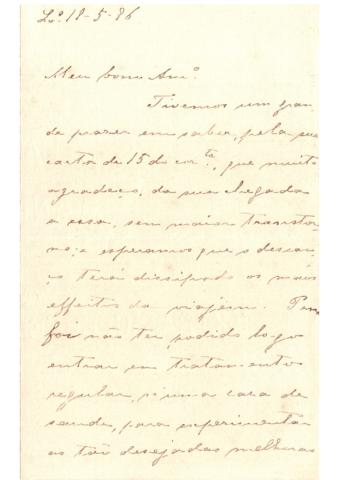 Lx.ª 18-5-86
Meu bom Am.º
Tivemos um gran
de prazer em saber, pela sua
carta de 15 do cor.te, que muito
agradeço, da sua chegada
a essa, sem maior transtor
no; e esperamos que o descan
ço terá dissipado os maus
effeitos da viagem. Pena
foi não ter podido logo
entrar em tratamento
regular, n'uma casa de
saude, para experimentar
as tão desejadas melhoras